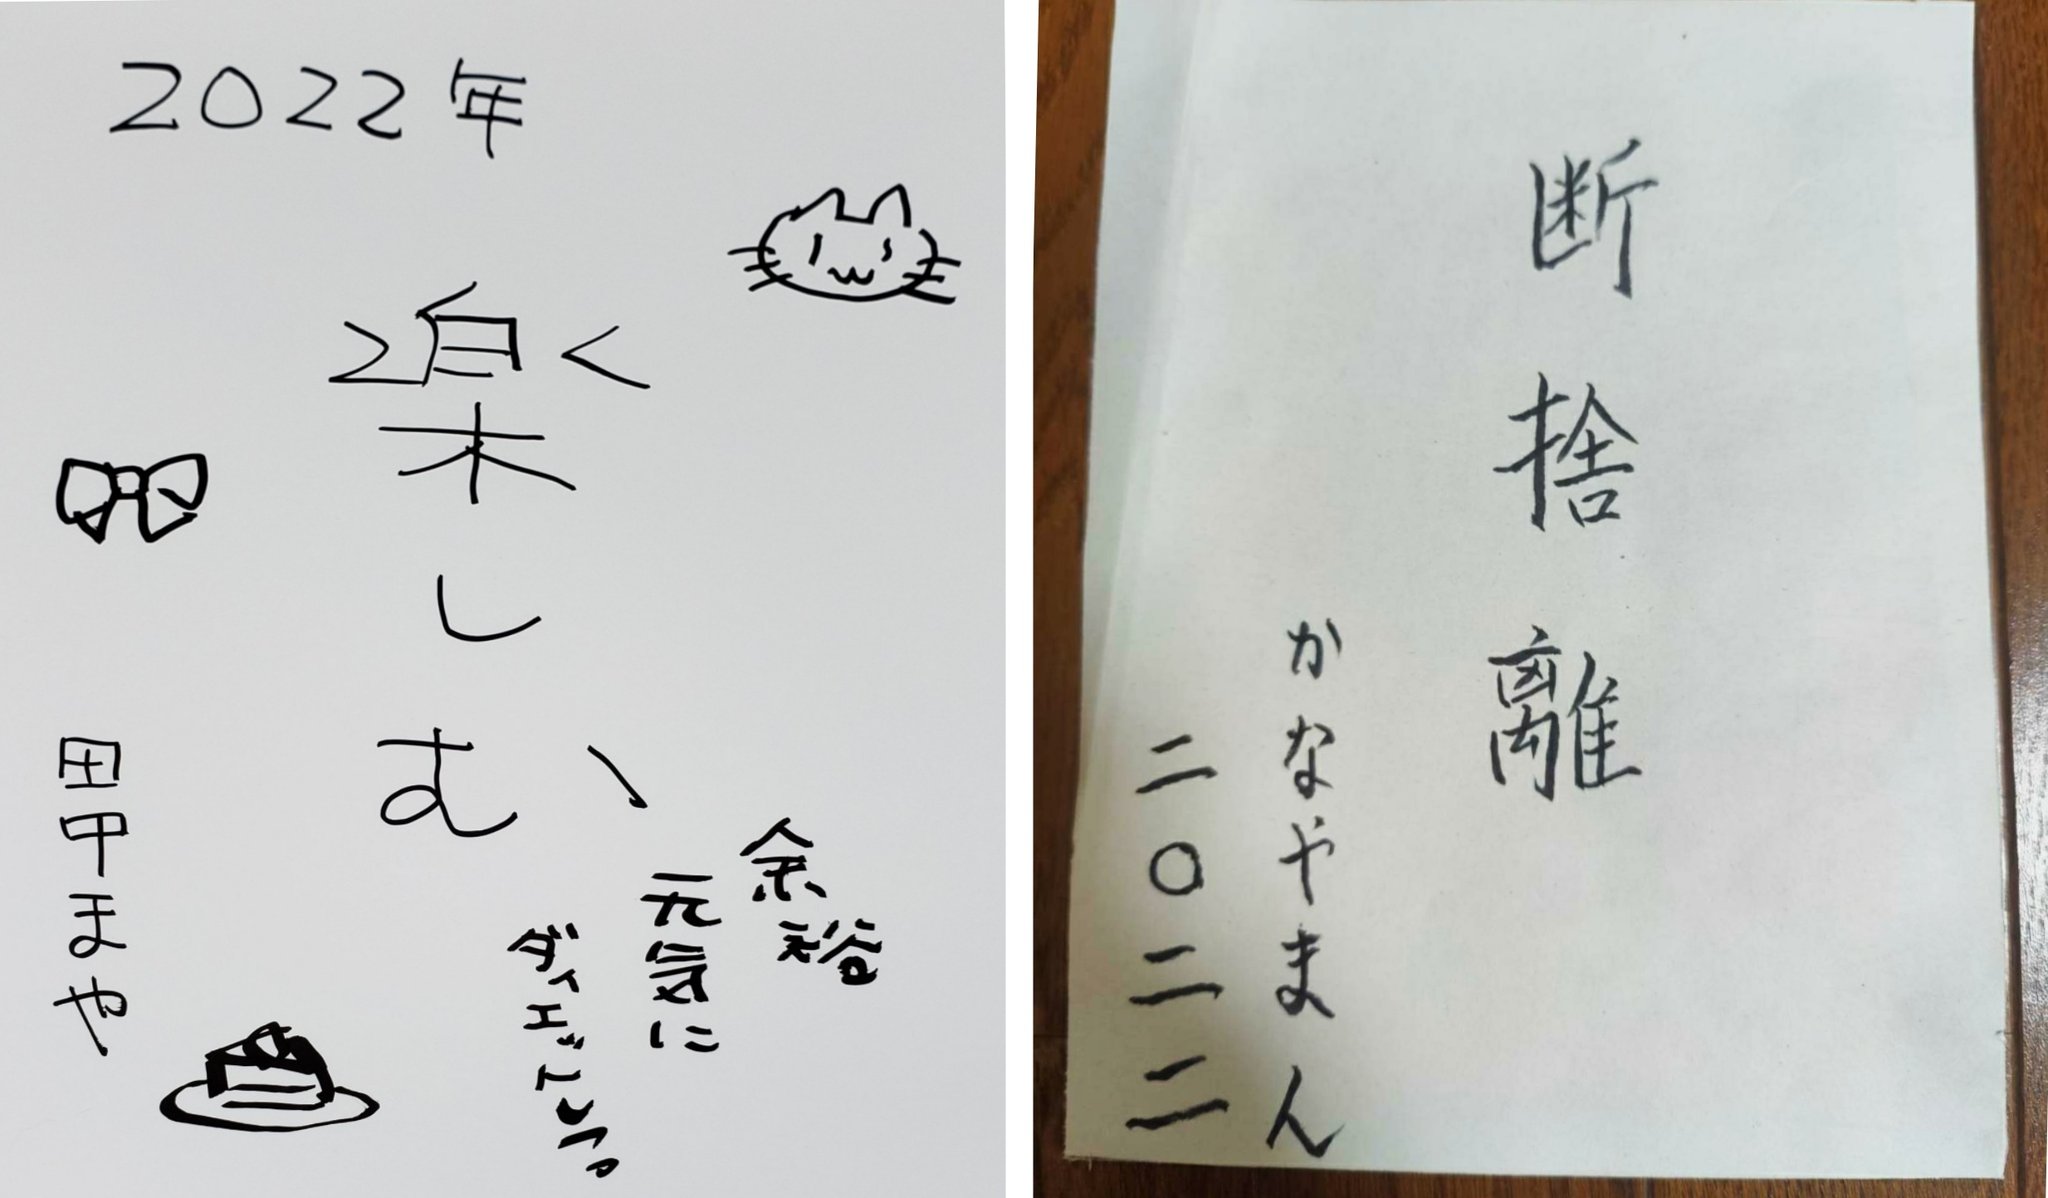 2022年
楽しむ
余裕
元気に
田中まや
断捨離
かなやまん
二〇二二